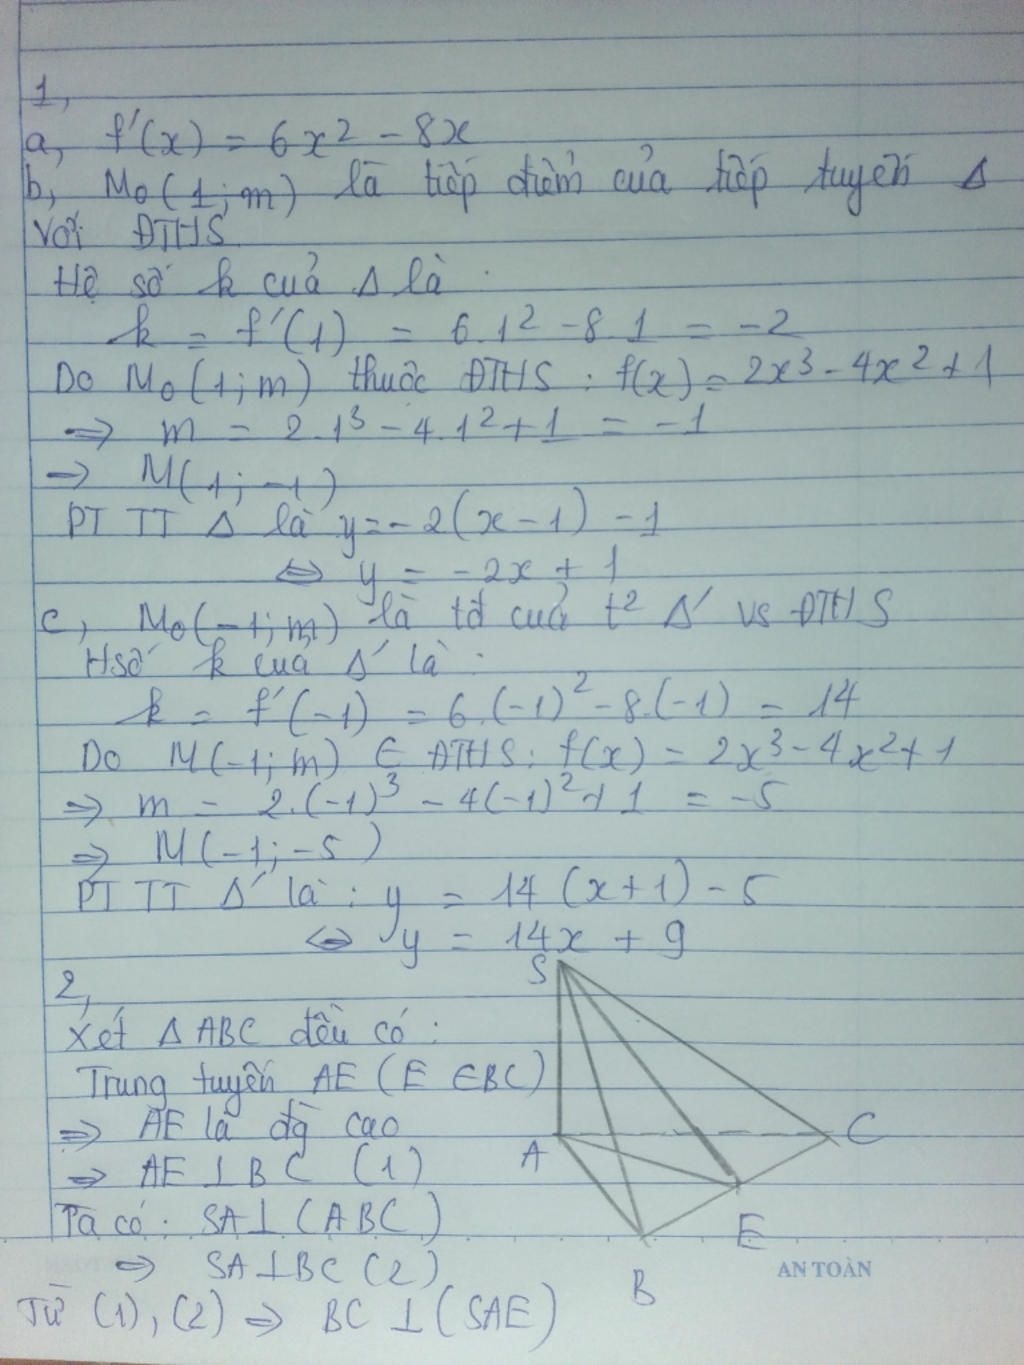 1,
a, f'(x) = 6x² - 8x
b, M₀(1; m) là tiếp điểm của tiếp tuyến Δ
Với ĐTHS
Hệ số k của Δ là :
k = f'(1) = 6.1² - 8.1 = -2
Do M₀(1; m) thuộc ĐTHS : f(x) = 2x³ - 4x² + 1
⇒ m = 2.1³ - 4.1² + 1 = -1
⇒ M(1; -1)
PT TT Δ là y = -2(x - 1) - 1
⇔ y = -2x + 1
c, M₀(-1; m) là tđ của t² Δ' vs ĐTHS
Hsố k của Δ' là :
k = f'(-1) = 6.(-1)² - 8.(-1) = 14
Do M(-1; m) ∈ ĐTHS : f(x) = 2x³ - 4x² + 1
⇒ m = 2.(-1)³ - 4(-1)² + 1 = -5
⇒ M(-1; -5)
PT TT Δ' là : y = 14(x + 1) - 5
⇔ y = 14x + 9
2,
Xét Δ ABC đều có :
Trung tuyến AE (E ∈ BC)
⇒ AE là đg cao
⇒ AE ⊥ BC (1)
Ta có : SA ⊥ (ABC)
⇒ SA ⊥ BC (2)
Từ (1), (2) ⇒ BC ⊥ (SAE)
S
A
C
E
B
AN TOÀN